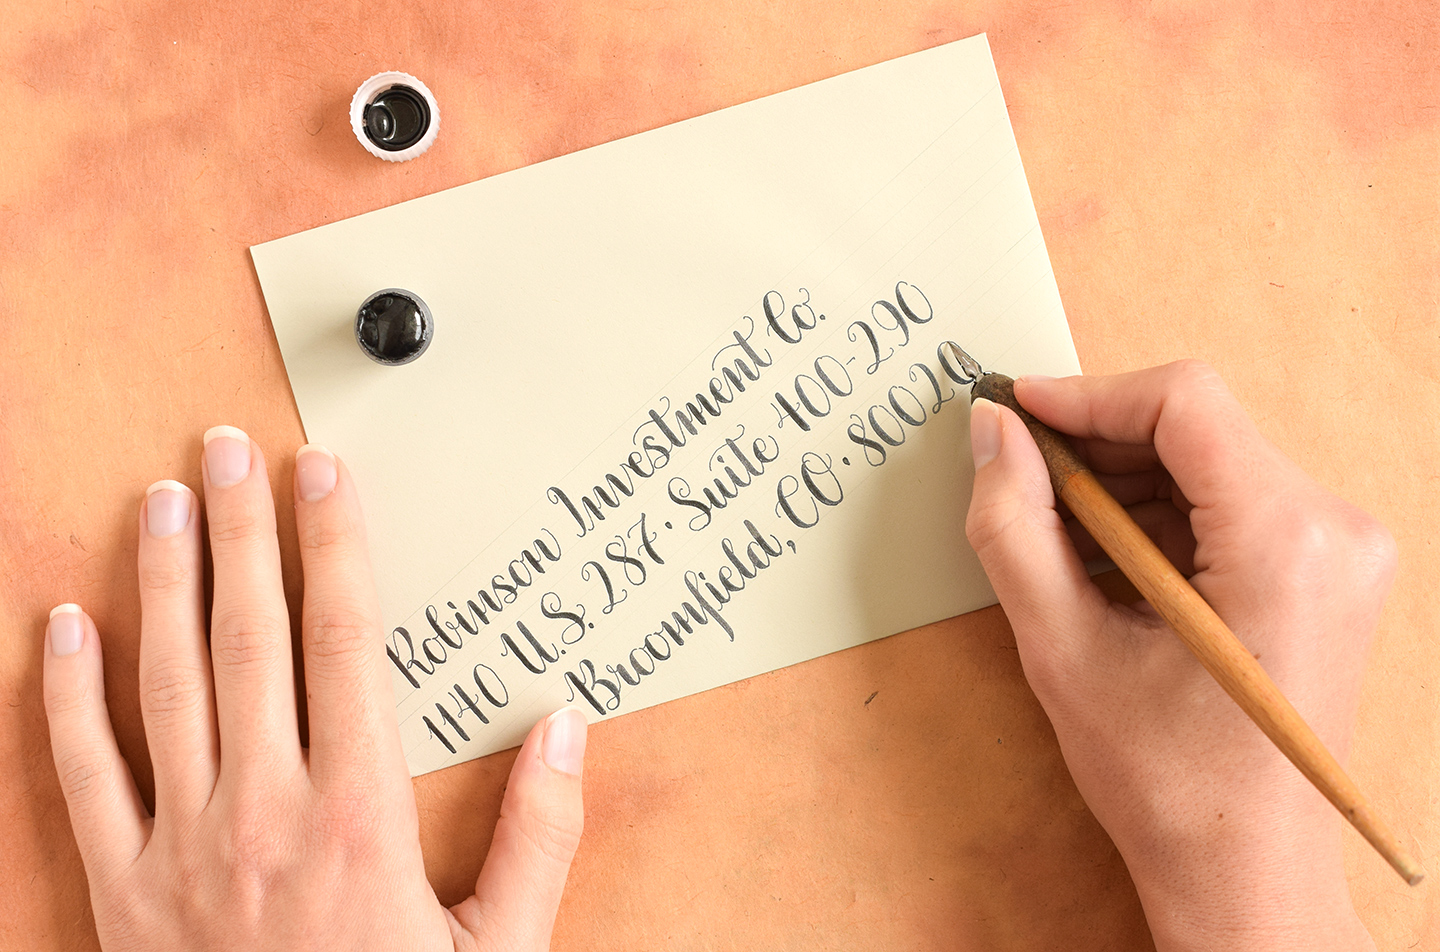 Robinson Investment Co.
1140 U.S. 287 · Suite 400-290
Broomfield, CO · 80020